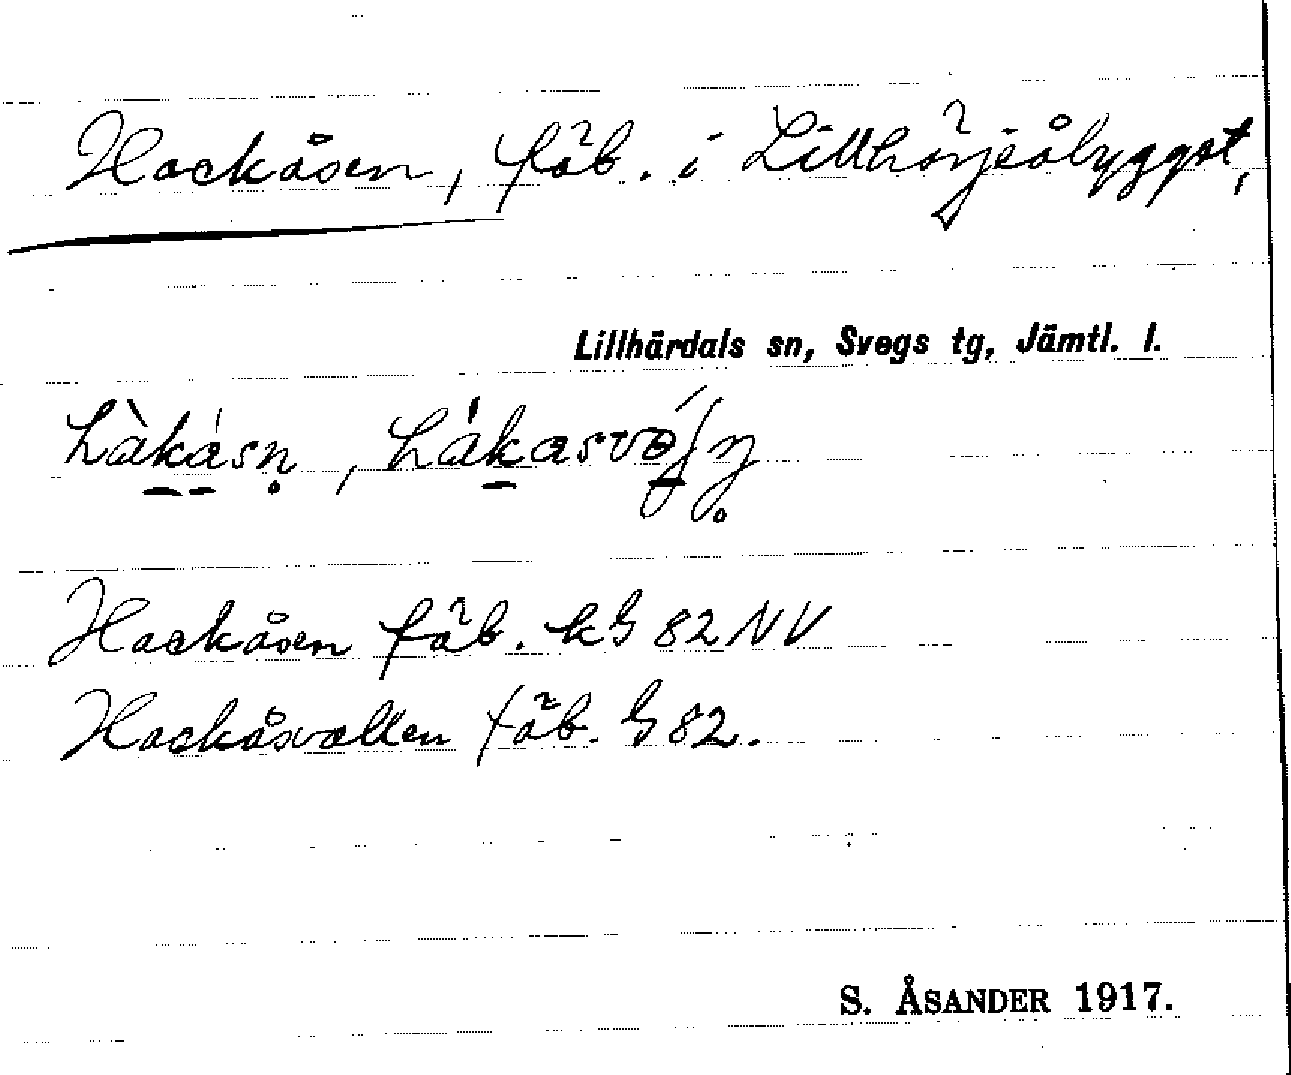 Hackåsen, fäb. i Lillhärjeåbyggst,
Lillhärdals sn, Svegs tg, Jämtl. l.
Hackåsen fäb. kG 82 NV
Hackåsvallen fäb. G 82.
S. ÅSANDER 1917.